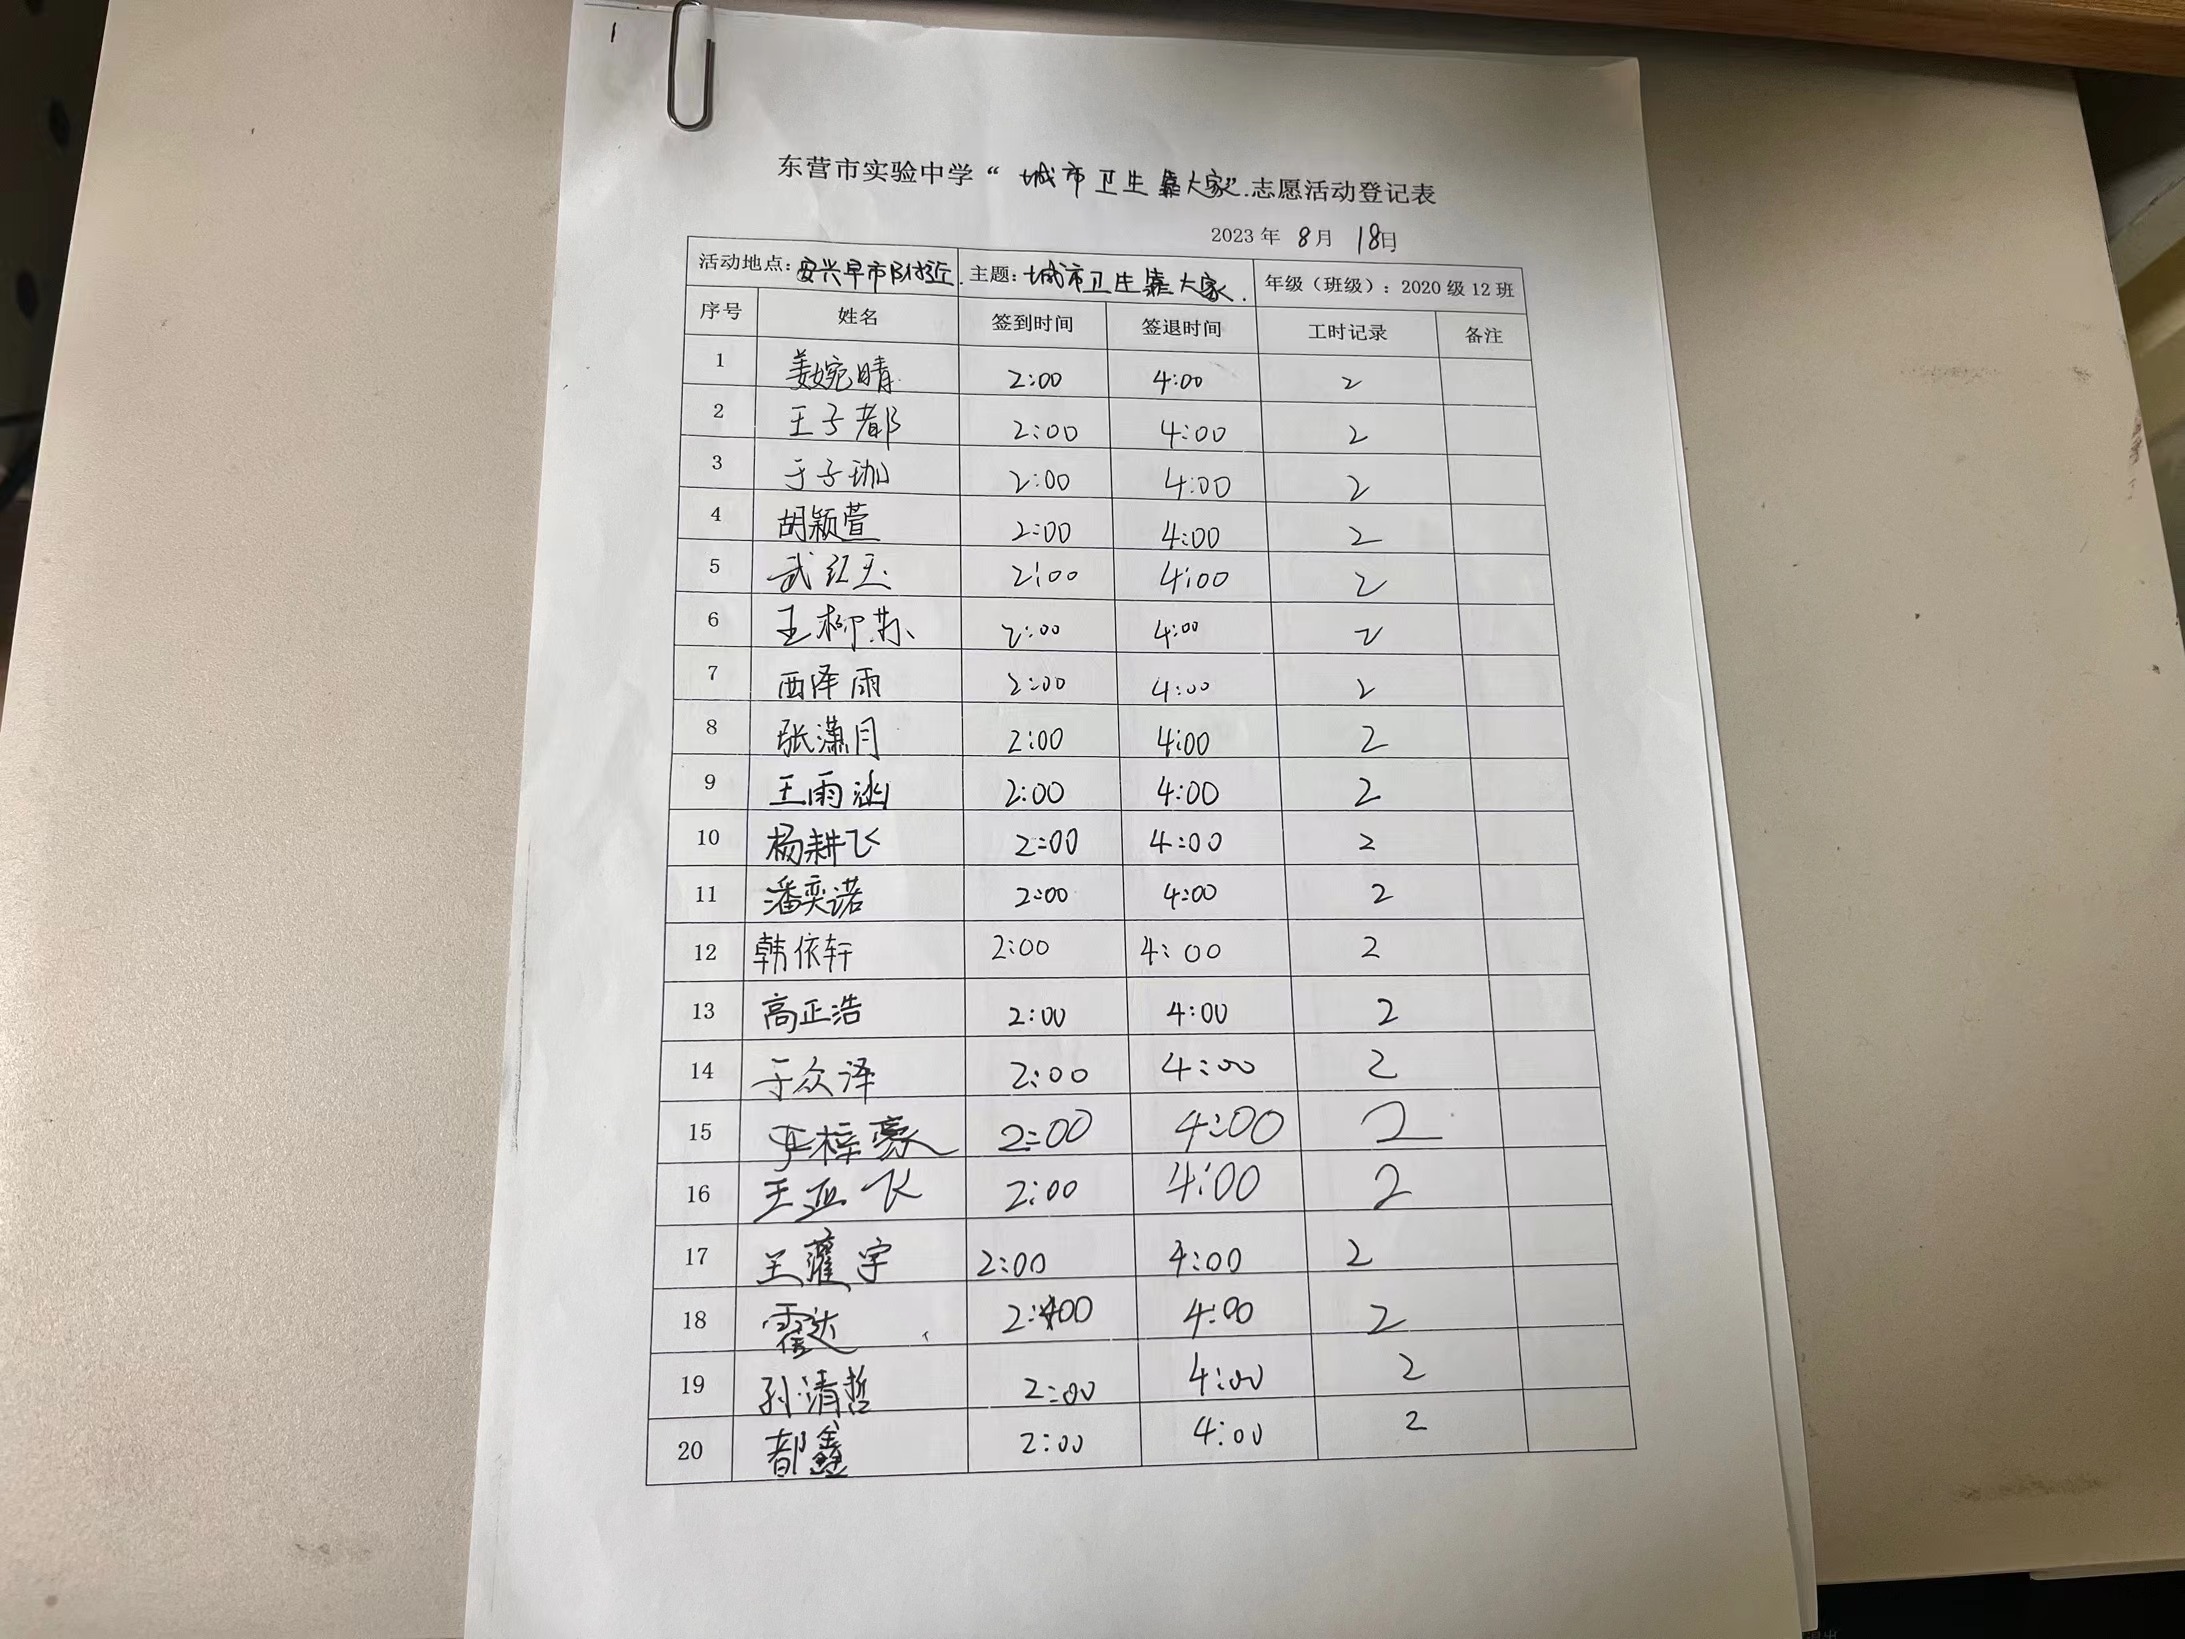 1
东营市实验中学“城市卫生靠大家”志愿活动登记表
2023 年 8 月 18日
活动地点：安兴早市附近. 主题：城市卫生靠大家. 年级（班级）：2020 级 12 班
序号 姓名 签到时间 签退时间 工时记录 备注
1 姜婉晴 2:00 4:00 2
2 王子都 2:00 4:00 2
3 于子珈 2:00 4:00 2
4 胡颖萱 2:00 4:00 2
5 武红玉 2:00 4:00 2
6 王柳苏 2:00 4:00 2
7 西泽雨 2:00 4:00 2
8 张潇月 2:00 4:00 2
9 王雨涵 2:00 4:00 2
10 杨耕飞 2:00 4:00 2
11 潘奕诺 2:00 4:00 2
12 韩依轩 2:00 4:00 2
13 高正浩 2:00 4:00 2
14 于众泽 2:00 4:00 2
15 尹梓豪 2:00 4:00 2
16 王亚飞 2:00 4:00 2
17 2:00 4:00 2
18 2:00 4:00 2
19 孙清哲 2:00 4:00 2
20 都鑫 2:00 4:00 2